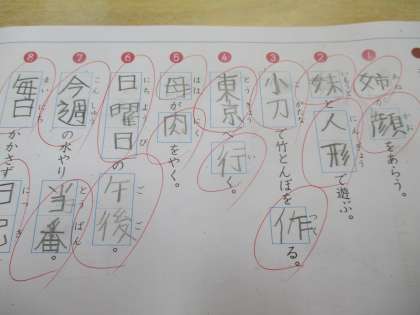 ① 姉が顔をあらう。
② 妹と人形で遊ぶ。
③ 小刀で竹とんぼを作る。
④ 東京へ行く。
⑤ 母が肉をやく。
⑥ 日曜日の午後。
⑦ 今週の水やり当番。
⑧ 毎日かかさず日記